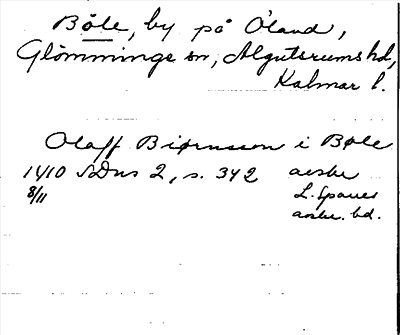 Böle, by på Öland,
Glömminge sn, Algutsrums hd,
Kalmar l.
Olaff Biørnsson i Bøle
1410 SDns 2, s. 342 avskr
8/11 L. Sparres
avskr. bd.